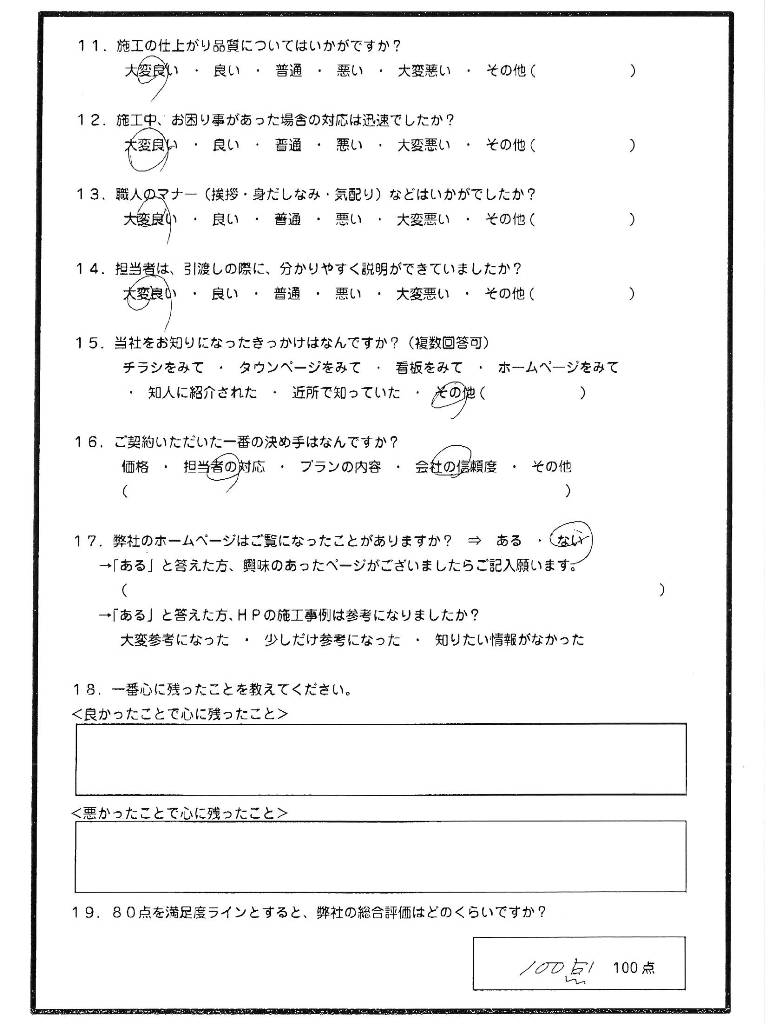 11．施工の仕上がり品質についてはいかがですか？
大変良い ・ 良い ・ 普通 ・ 悪い ・ 大変悪い ・ その他（　　　　　）
12．施工中、お困り事があった場合の対応は迅速でしたか？
大変良い ・ 良い ・ 普通 ・ 悪い ・ 大変悪い ・ その他（　　　　　）
13．職人のマナー（挨拶・身だしなみ・気配り）などはいかがでしたか？
大変良い ・ 良い ・ 普通 ・ 悪い ・ 大変悪い ・ その他（　　　　　）
14．担当者は、引渡しの際に、分かりやすく説明ができていましたか？
大変良い ・ 良い ・ 普通 ・ 悪い ・ 大変悪い ・ その他（　　　　　）
15．当社をお知りになったきっかけはなんですか？（複数回答可）
チラシをみて ・ タウンページをみて ・ 看板をみて ・ ホームページをみて
・ 知人に紹介された ・ 近所で知っていた ・ その他（　　　　　）
16．ご契約いただいた一番の決め手はなんですか？
価格 ・ 担当者の対応 ・ プランの内容 ・ 会社の信頼度 ・ その他
（　　　　　）
17．弊社のホームページはご覧になったことがありますか？ ⇒ ある ・ ない
→「ある」と答えた方、興味のあったページがございましたらご記入願います。
（　　　　　）
→「ある」と答えた方、ＨＰの施工事例は参考になりましたか？
大変参考になった ・ 少しだけ参考になった ・ 知りたい情報がなかった
18．一番心に残ったことを教えてください。
＜良かったことで心に残ったこと＞
＜悪かったことで心に残ったこと＞
19．80点を満足度ラインとすると、弊社の総合評価はどのくらいですか？
100点 100点